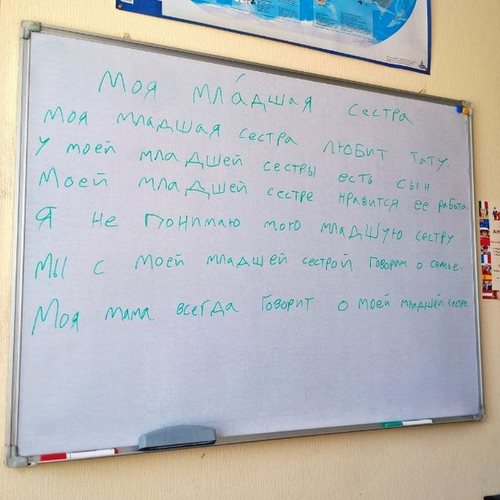 Моя мла́дшая сестра
Моя младшая сестра любит тату.
У моей младшей сестры есть сын
Моей младшей сестре нравится ее работа
Я не понимаю мою младшую сестру
Мы с моей младшей сестрой говорим о семье.
Моя мама всегда говорит о моей младшей сестре